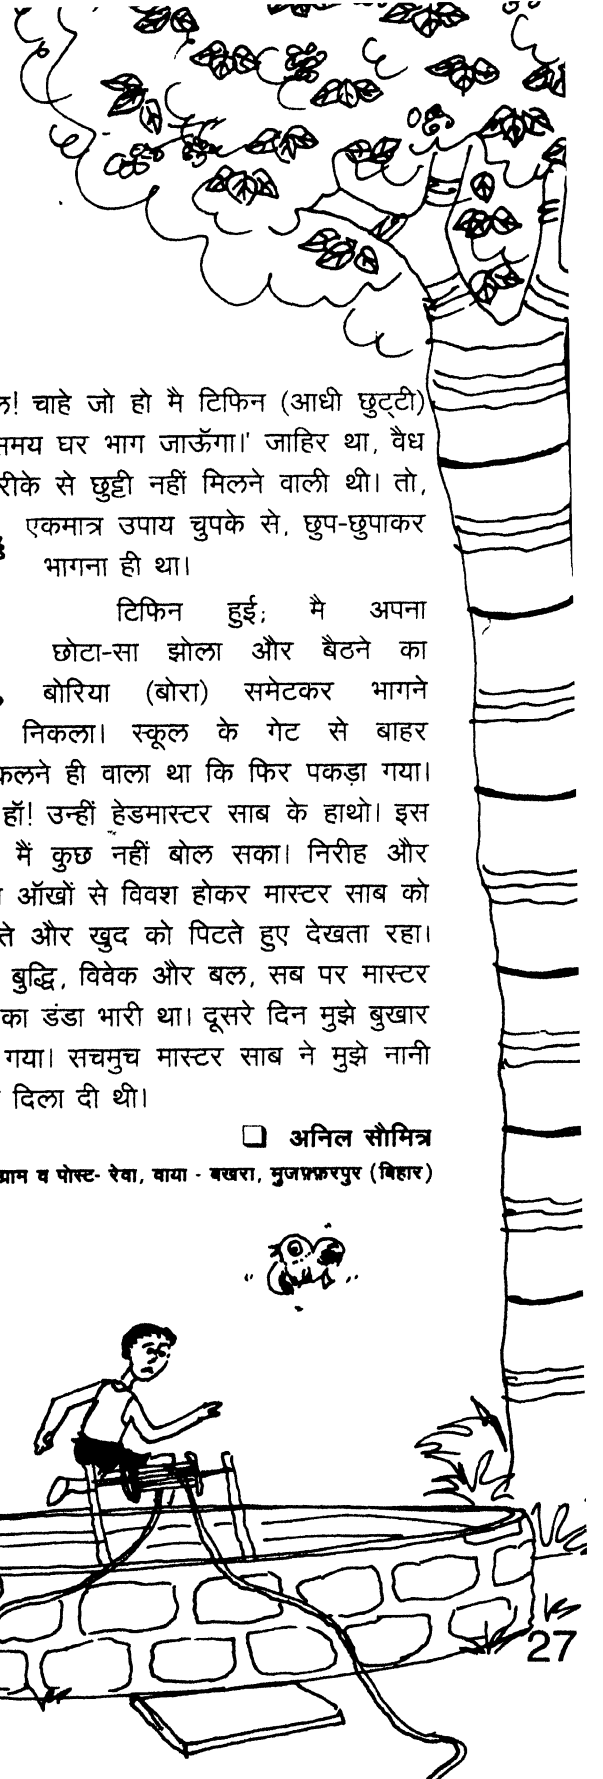 चाहे जो हो मै टिफिन (आधी छुट्टी)
समय घर भाग जाऊँगा।' जाहिर था, वैध
से छुट्टी नहीं मिलने वाली थी। तो,
एकमात्र उपाय चुपके से, छुप-छुपाकर
भागना ही था।
टिफिन हुई; मै अपना
छोटा-सा झोला और बैठने का
बोरिया (बोरा) समेटकर भागने
निकला। स्कूल के गेट से बाहर
ही वाला था कि फिर पकड़ा गया।
हॉ! उन्हीं हेडमास्टर साब के हाथो। इस
मैं कुछ नहीं बोल सका। निरीह और
ऑखों से विवश होकर मास्टर साब को
और खुद को पिटते हुए देखता रहा।
बुद्धि, विवेक और बल, सब पर मास्टर
का डंडा भारी था। दूसरे दिन मुझे बुखार
गया। सचमुच मास्टर साब ने मुझे नानी
दिला दी थी।
❑ अनिल सौमित्र
ग्राम व पोस्ट- रेवा, वाया - बखरा, मुजफ़्फ़रपुर (बिहार)
27